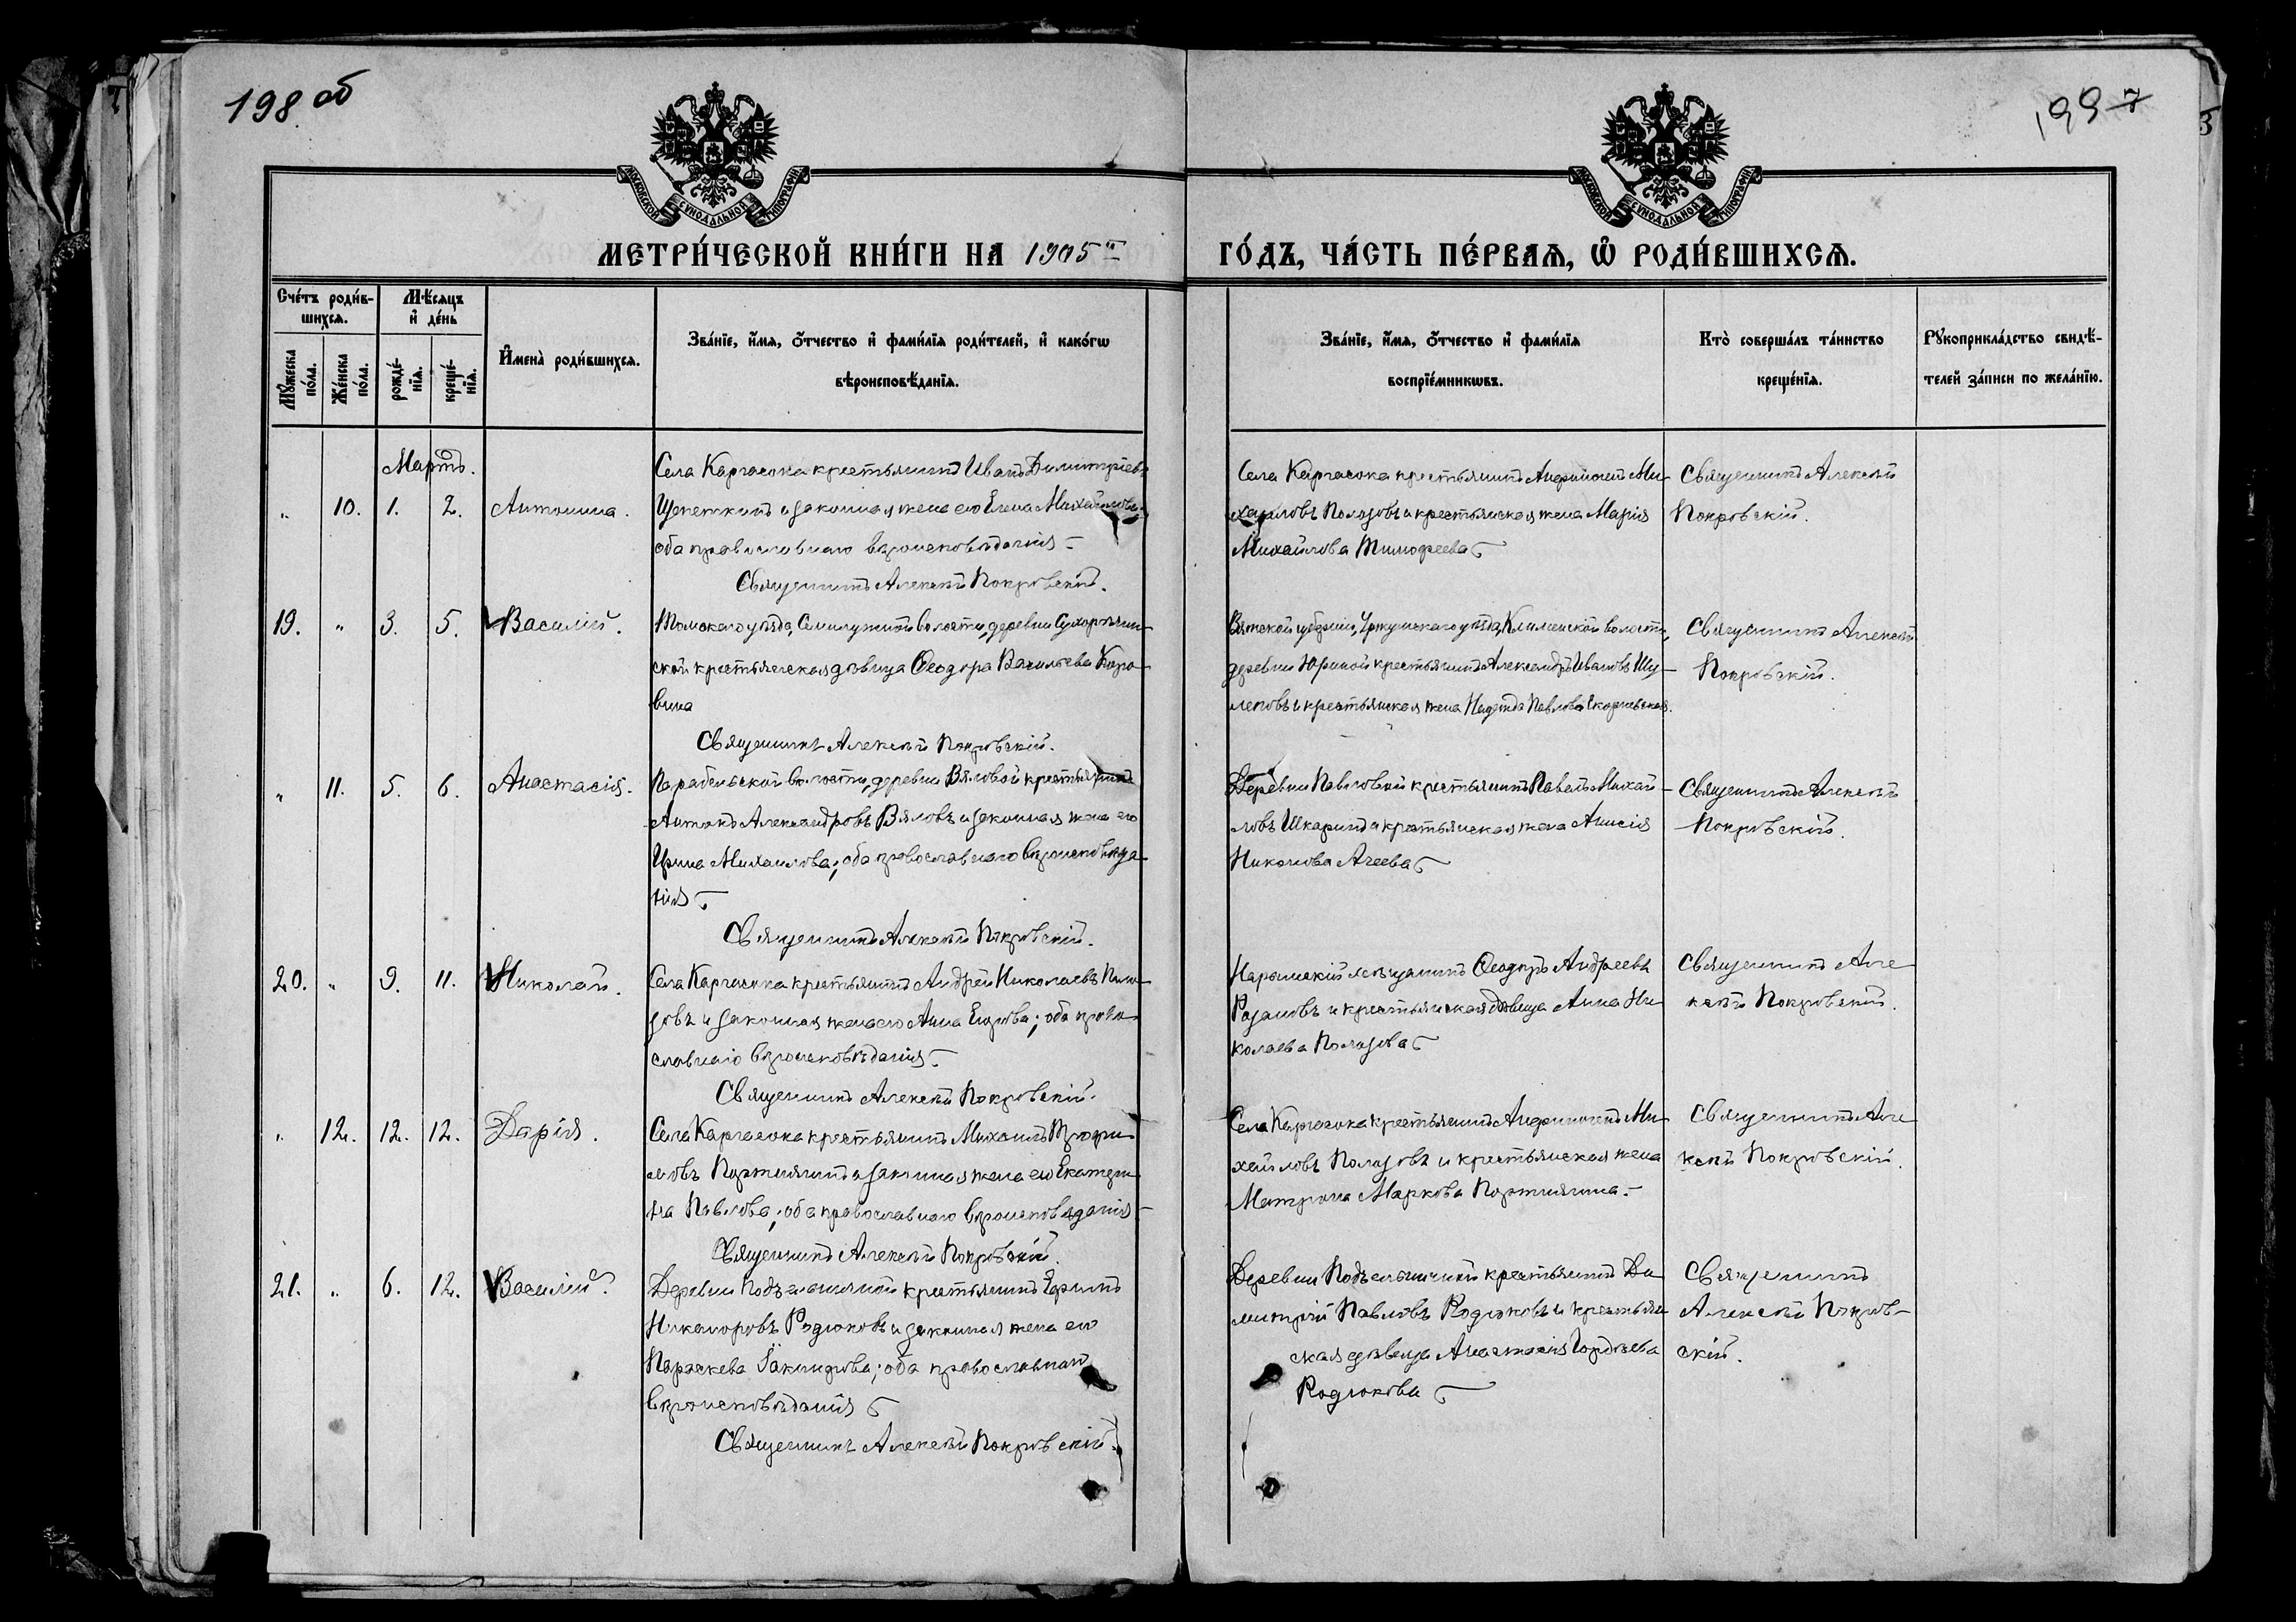 198 об
199
МОСКОВСКОЙ СѴНОДАЛЬНОЙ ТИПОГРАФІИ
МОСКОВСКОЙ СѴНОДАЛЬНОЙ ТИПОГРАФІИ
МЕТРИ́ЧЕСКОЙ КНИ́ГИ НА 1905 й
ГО́ДЪ, ЧА́СТЬ ПЕ́РВАѦ, Ѡ РОДИ́ВШИХСѦ.
Сче́тъ роди́в-
шихсѧ.
Мѣ́сѧцъ
и҆ де́нь
Мꙋ́жеска
по́ла.
Же́нска
по́ла.
рожде́-
нїѧ.
креще́-
нїѧ.
И҆мена̀ роди́вшихсѧ.
Зва́нїе, и҆́мѧ, ѻ҆́тчество и҆ фами́лїѧ роди́телей, и҆ како́гѡ
вѣроисповѣ́данїѧ.
Зва́нїе, и҆́мѧ, ѻ҆́тчество и҆ фами́лїѧ
воспрїе́мникѡвъ.
Кто̀ соверша́лъ та́инство
креще́нїѧ.
Рꙋкоприкла́дство свидѣ́-
телей за́писи по жела́нїю.
Мартъ.
" 10. 1. 2. Антонина.
Села Каргасока крестьянинъ Иванъ Димитріевъ
Щепеткинъ и законная жена его Елена Михайлова;
оба православнаго вѣроисповѣданія
Священникъ Алексѣй Покровскій.
Села Каргасока крестьянинъ Андроникъ Ми-
хайловъ Полозовъ и крестьянская жена Марія
Михайлова Тимофеева
Священникъ Алексѣй
Покровскій.
19. " 3. 5. Василій.
Томскаго уѣзда, Семилужной волости, деревни Сухорѣчен-
ской крестьянская дѣвица Ѳеодора Васильева Коро-
вина
Священникъ Алексѣй Покровскій.
Вятской губерніи, Уржумскаго уѣзда, волости,
деревни Юриной крестьянинъ Александръ Ивановъ Шу-
леповъ и крестьянская жена Надежда Павлова
Священникъ Алексѣй
Покровскій.
" 11. 5. 6. Анастасія.
Парабельской волости, деревни Вяловой крестьянинъ
Антонъ Александровъ Вяловъ и законная жена его
Ирина Михаилова; оба православнаго вѣроисповѣда-
нія
Священникъ Алексѣй Покровскій.
Деревни Павловой крестьянинъ Павелъ Михай-
ловъ Шкаринъ и крестьянская жена Анисія
Никонова Агеева
Священникъ Алексѣй
Покровскій.
20. " 9. 11. Николай.
Села Каргасока крестьянинъ Андрей Николаевъ Поло-
зовъ и законная жена его Анна Егорова; оба право-
славнаго вѣроисповѣданія
Священникъ Алексѣй Покровскій.
Нарымскій мѣщанинъ Ѳеодоръ Андреевъ
Родановъ и крестьянская дѣвица Анна Ни-
колаева Полозова
Священникъ Але-
ксѣй Покровскій.
" 12. 12. 12. Дарія.
Села Каргасока крестьянинъ Михаилъ Трофи-
мовъ Портнягинъ и законная жена его Екатери-
на Павлова; оба православнаго вѣроисповѣданія
Священникъ Алексѣй Покровскій.
Села Каргасока крестьянинъ Андроникъ Ми-
хайловъ Полозовъ и крестьянская жена
Матрона Маркова Портнягина.
Священникъ Але-
ксѣй Покровскій.
21. " 6. 12. Василій.
Деревни Подъельничной крестьянинъ Ефимъ
Никаноровъ Родюковъ и законная жена его
Параскева Іакинфова; оба православнаго
вѣроисповѣданія
Священникъ Алексѣй Покровскій.
Деревни Подъельничной крестьянинъ Ди-
митрій Павловъ Родюковъ и крестьян-
ская дѣвица Анастасія Гордѣева
Родюкова
Священникъ
Алексѣй Покров-
скій.